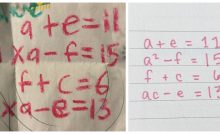 a+e=11
xa-f=15
f+c=6
xa-e=13
a + e = 11
a² - f = 15
f + c = 6
ac - e = 13